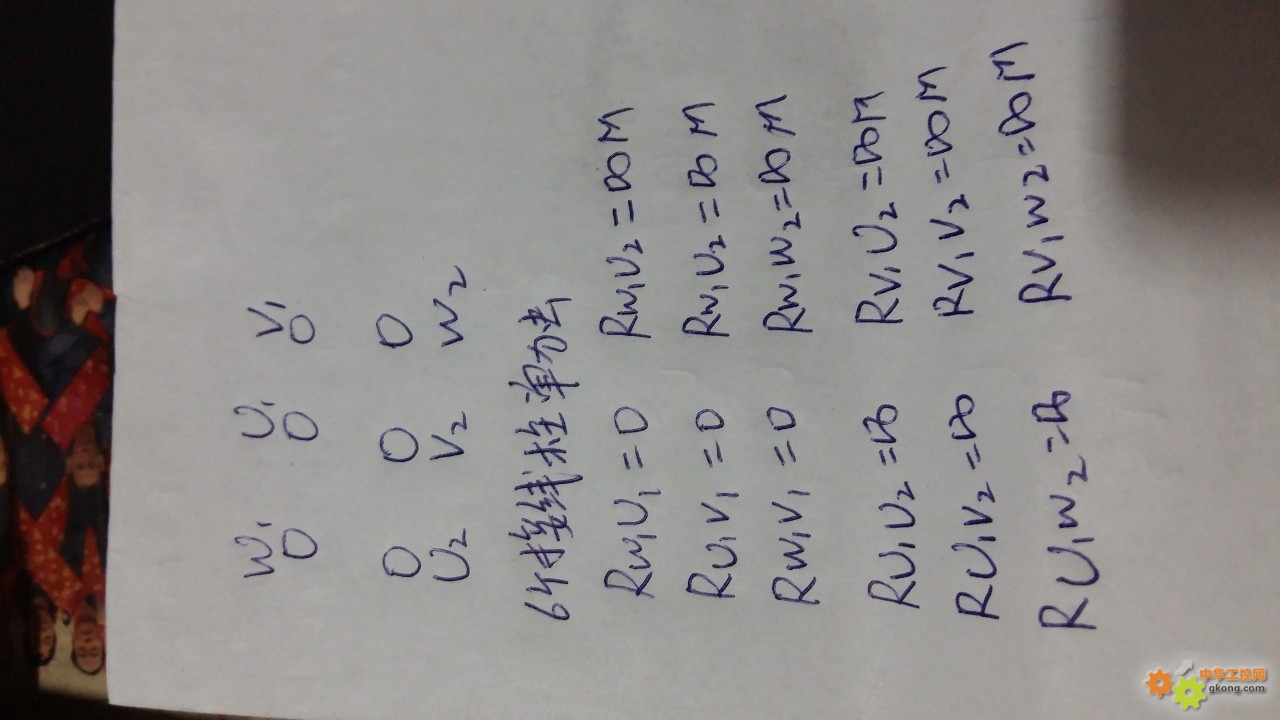 W1 U1 V1
O O O
O O O
U2 V2 W2
6个接线柱单办法
RW1U1=0 RW1U2=∞M
RU1V1=0 RW1U2=∞M
RW1V1=0 RW1W2=∞M
RU1U2=∞ RV1U2=∞M
RU1V2=∞ RV1V2=∞M
RU1W2=∞ RV1W2=∞M
中华工控网
gkong.com